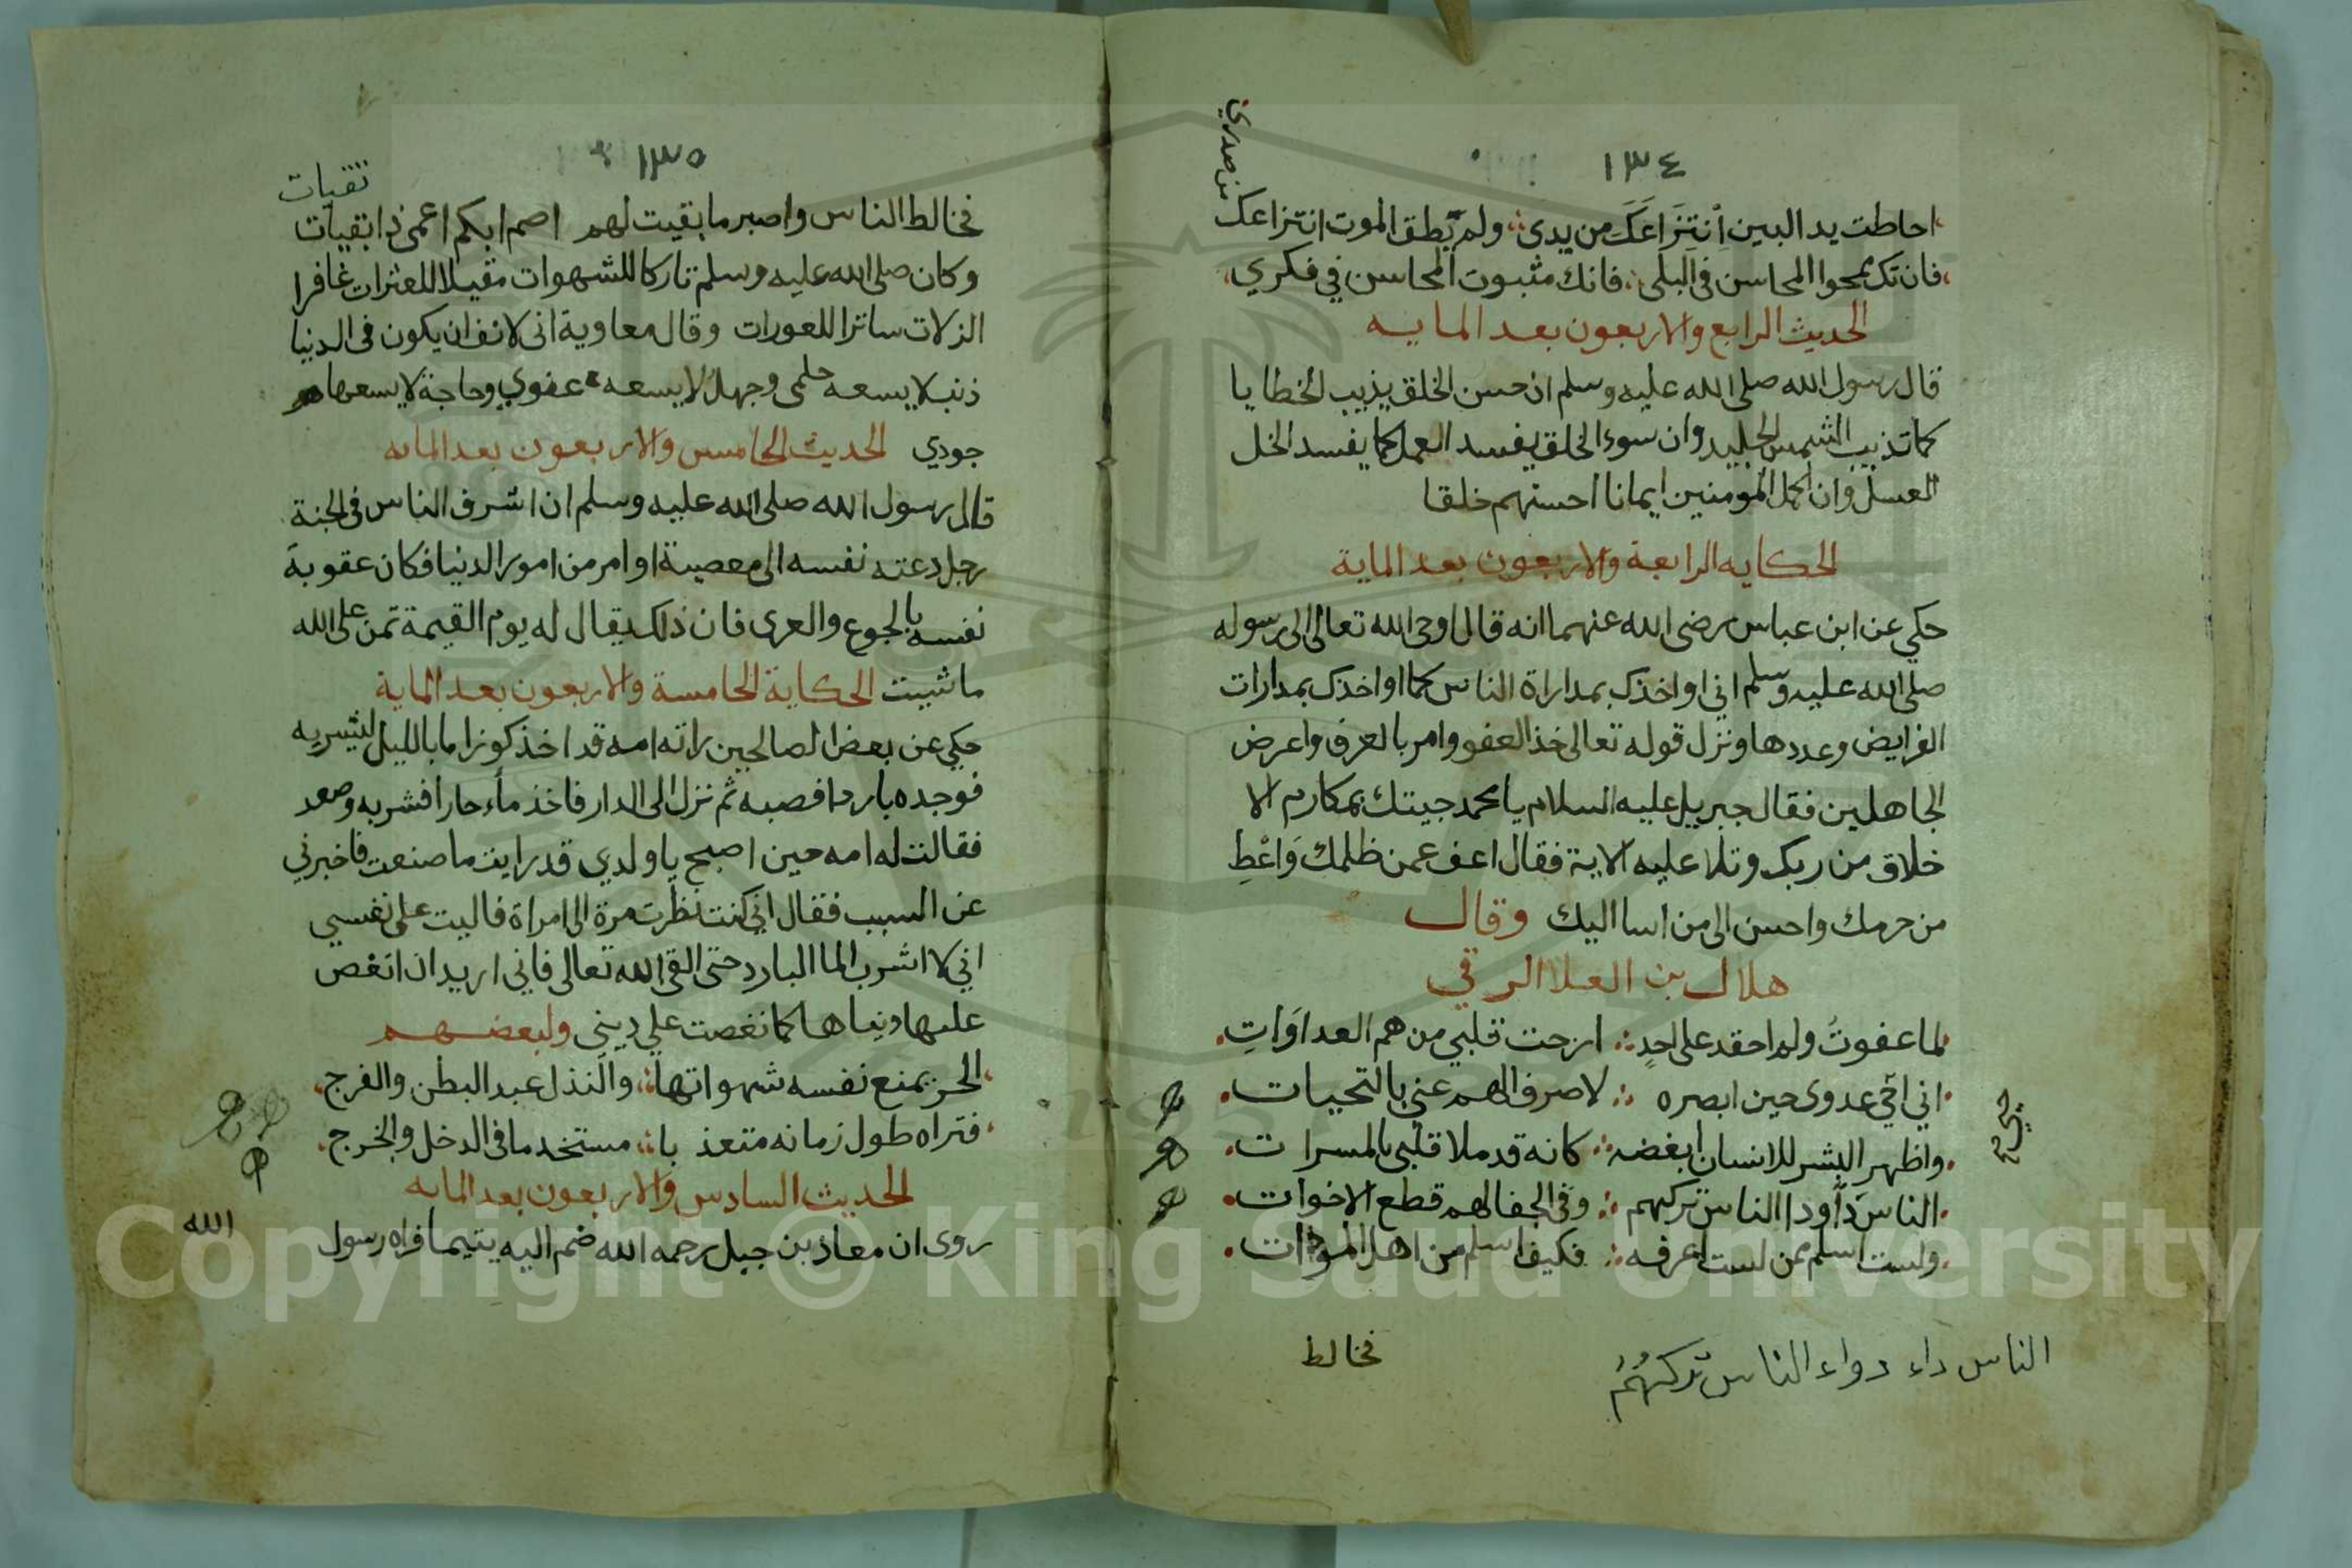 ١٣٤
احاطت يد البين انتزاعك من يدى ولم يطق الموت انتزاعك
من صدري
فان تك يمحوا المحاسن فى البلى فانك مثبوت المحاسن في فكري
الحديث الرابع والاربعون بعد المايه
قال رسول الله صلى الله عليه وسلم ان حسن الخلق يذيب الخطايا
كما تذيب الشمس الجليد وان سوء الخلق يفسد العمل كما يفسد الخل
العسل وان اكمل المومنين ايمانا احسنهم خلقا
الحكايه الرابعة والاربعون بعد الماية
حكي عن ابن عباس رضى الله عنهما انه قال اوحى الله تعالى الى رسوله
صلى الله عليه وسلم اني اواخذك بمداراة الناس كما اواخذك بمدارات
الفرايض وعددها ونزل قوله تعالى خذ العفو وامر بالعرف واعرض
الجاهلين فقال جبريل عليه السلام يا محمد جيتك بمكارم الا
خلاق من ربك وتلا عليه الاية فقال اعف عمن ظلمك وَاعْطِ
من حرمك واحسن الى من اسا اليك وقال
هلال بن العلا الرقي
لما عفوتُ ولم احقد على احدٍ ارحت قلبي من هم العداوَاتِ
اني احي عدوى حين ابصره لاصرف الهم عني بالتحيات
واظهر البشر للانسان ابغضه كانه قد ملا قلبى بالمسرات
الناس دَاودا الناس تركهم وفى الجفا لهم قطع الاخوات
ولست اسلم ممن لست اعرفه فكيف اسلم من اهل المودات
الناس داء دواء الناس تركهُمُ
فخالط
١٣٥
تقيات
فخالط الناس واصبر ما بقيت لهم اصم ابكم اعمى ذا بقيات
وكان صلى الله عليه وسلم تاركا للشهوات مقيلا للعثرات غافرا
الزلات ساترا للعورات وقال معاوية انى لانف ان يكون فى الدنيا
ذنب لا يسعه حلمى وجهل لا يسعه عفوي وحاجة لا يسعها
جودي الحديث الخامس والاربعون بعد المايه
قال رسول الله صلى الله عليه وسلم ان اشرف الناس فى الجنة
رجل دعته نفسه الى معصية او امر من امور الدنيا فكان عقوبة
نفسه بالجوع والعرى فان ذلك يقال له يوم القيمة تمن على الله
ما شيت الحكاية الخامسة والاربعون بعد الماية
حكي عن بعض الصالحين راته امه قد اخذ كوز اما بالليل ليشربه
فوجده باردا فصبه ثم نزل الى الدار فاخذ مأء حارا فشربه وصعد
فقالت له امه حين اصبح يا ولدي قد رايت ما صنعت فاخبرني
عن السبب فقال اني كنت نظرت مرة الى امراة فاليت على نفسي
اني لا اشرب الما البارد حتى القى الله تعالى فاني اريد ان انغص
عليها دنياها كما نغصت علي ديني ولبعضهم
الحر يمنع نفسه شهواتها والنذل عبد البطن والفرج
فتراه طول زمانه متعذ با مستخدما فى الدخل والخرج
الحديث السادس والاربعون بعد المايه
روى ان معاذ بن جبل رحمه الله ضم اليه يتيما فراه رسول
الله
Copyright © King Saud University